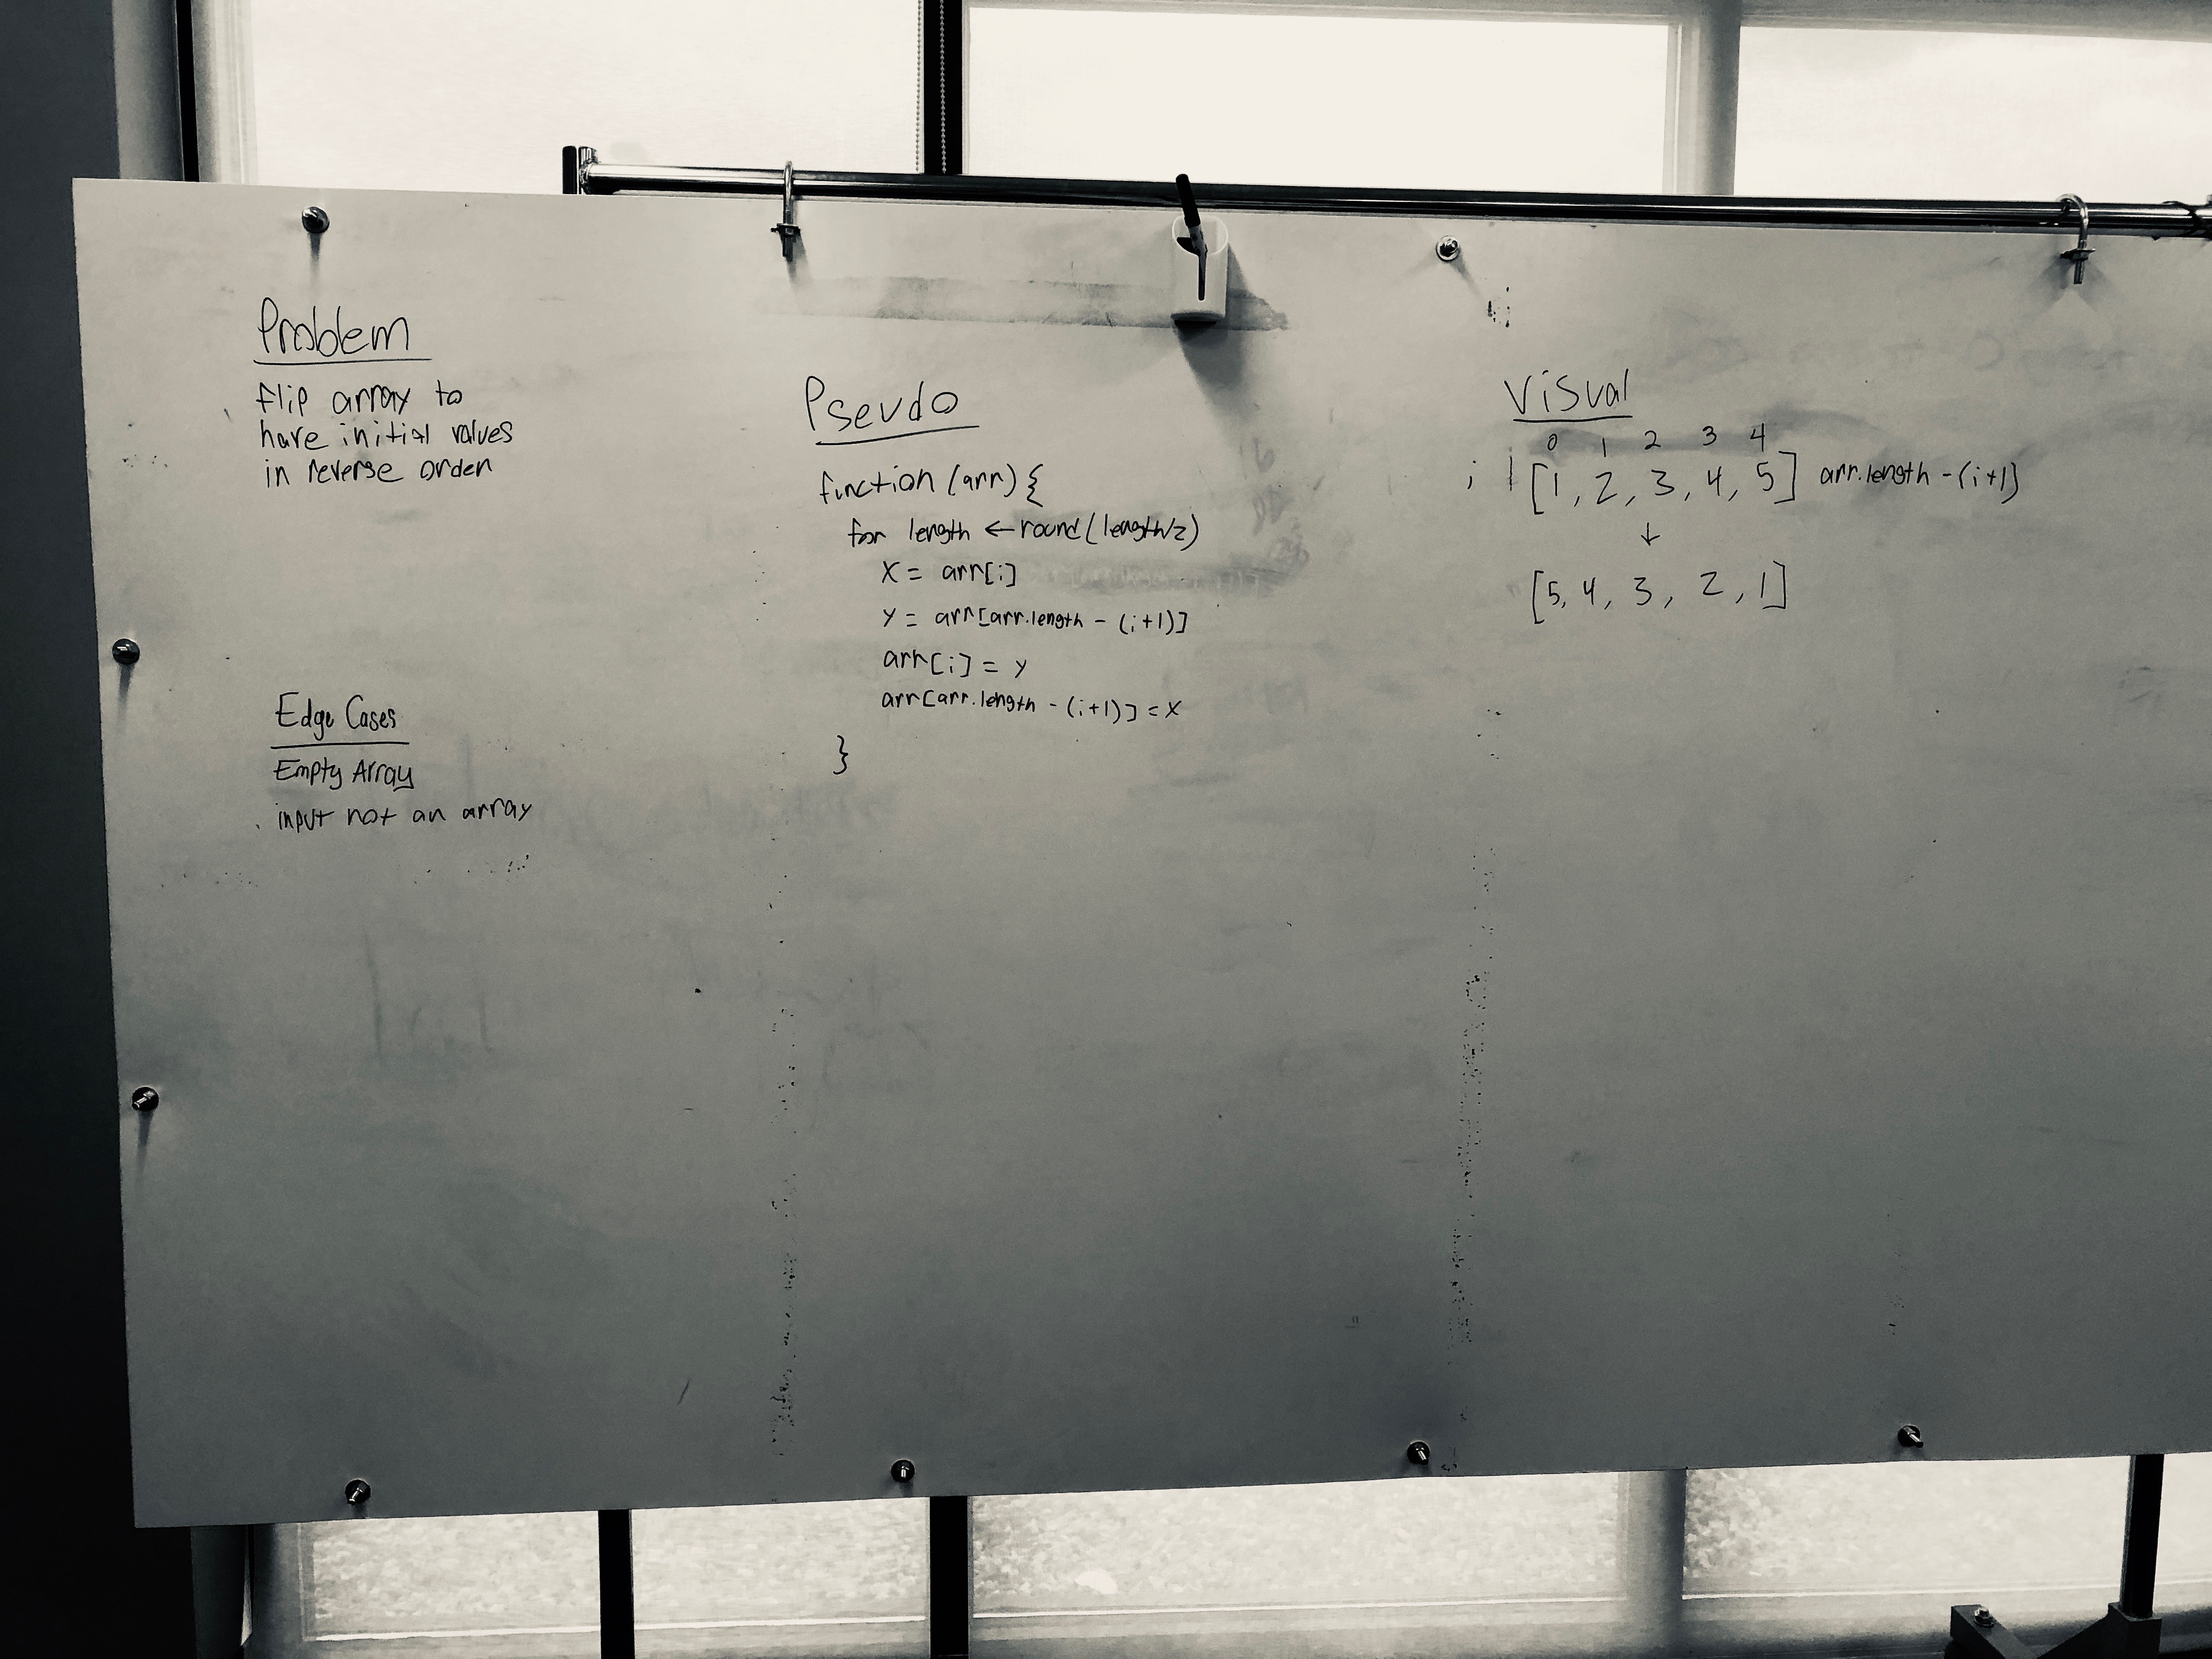 Problem
flip array to
have initial values
in reverse order
Edge Cases
Empty Array
input not an array
Pseudo
function (arr) {
for length ← round(length/2)
X = arr[i]
Y = arr[arr.length - (i+1)]
arr[i] = Y
arr[arr.length - (i+1)] = X
}
Visual
0 1 2 3 4
i [1, 2, 3, 4, 5] arr.length - (i+1)
↓
[5, 4, 3, 2, 1]